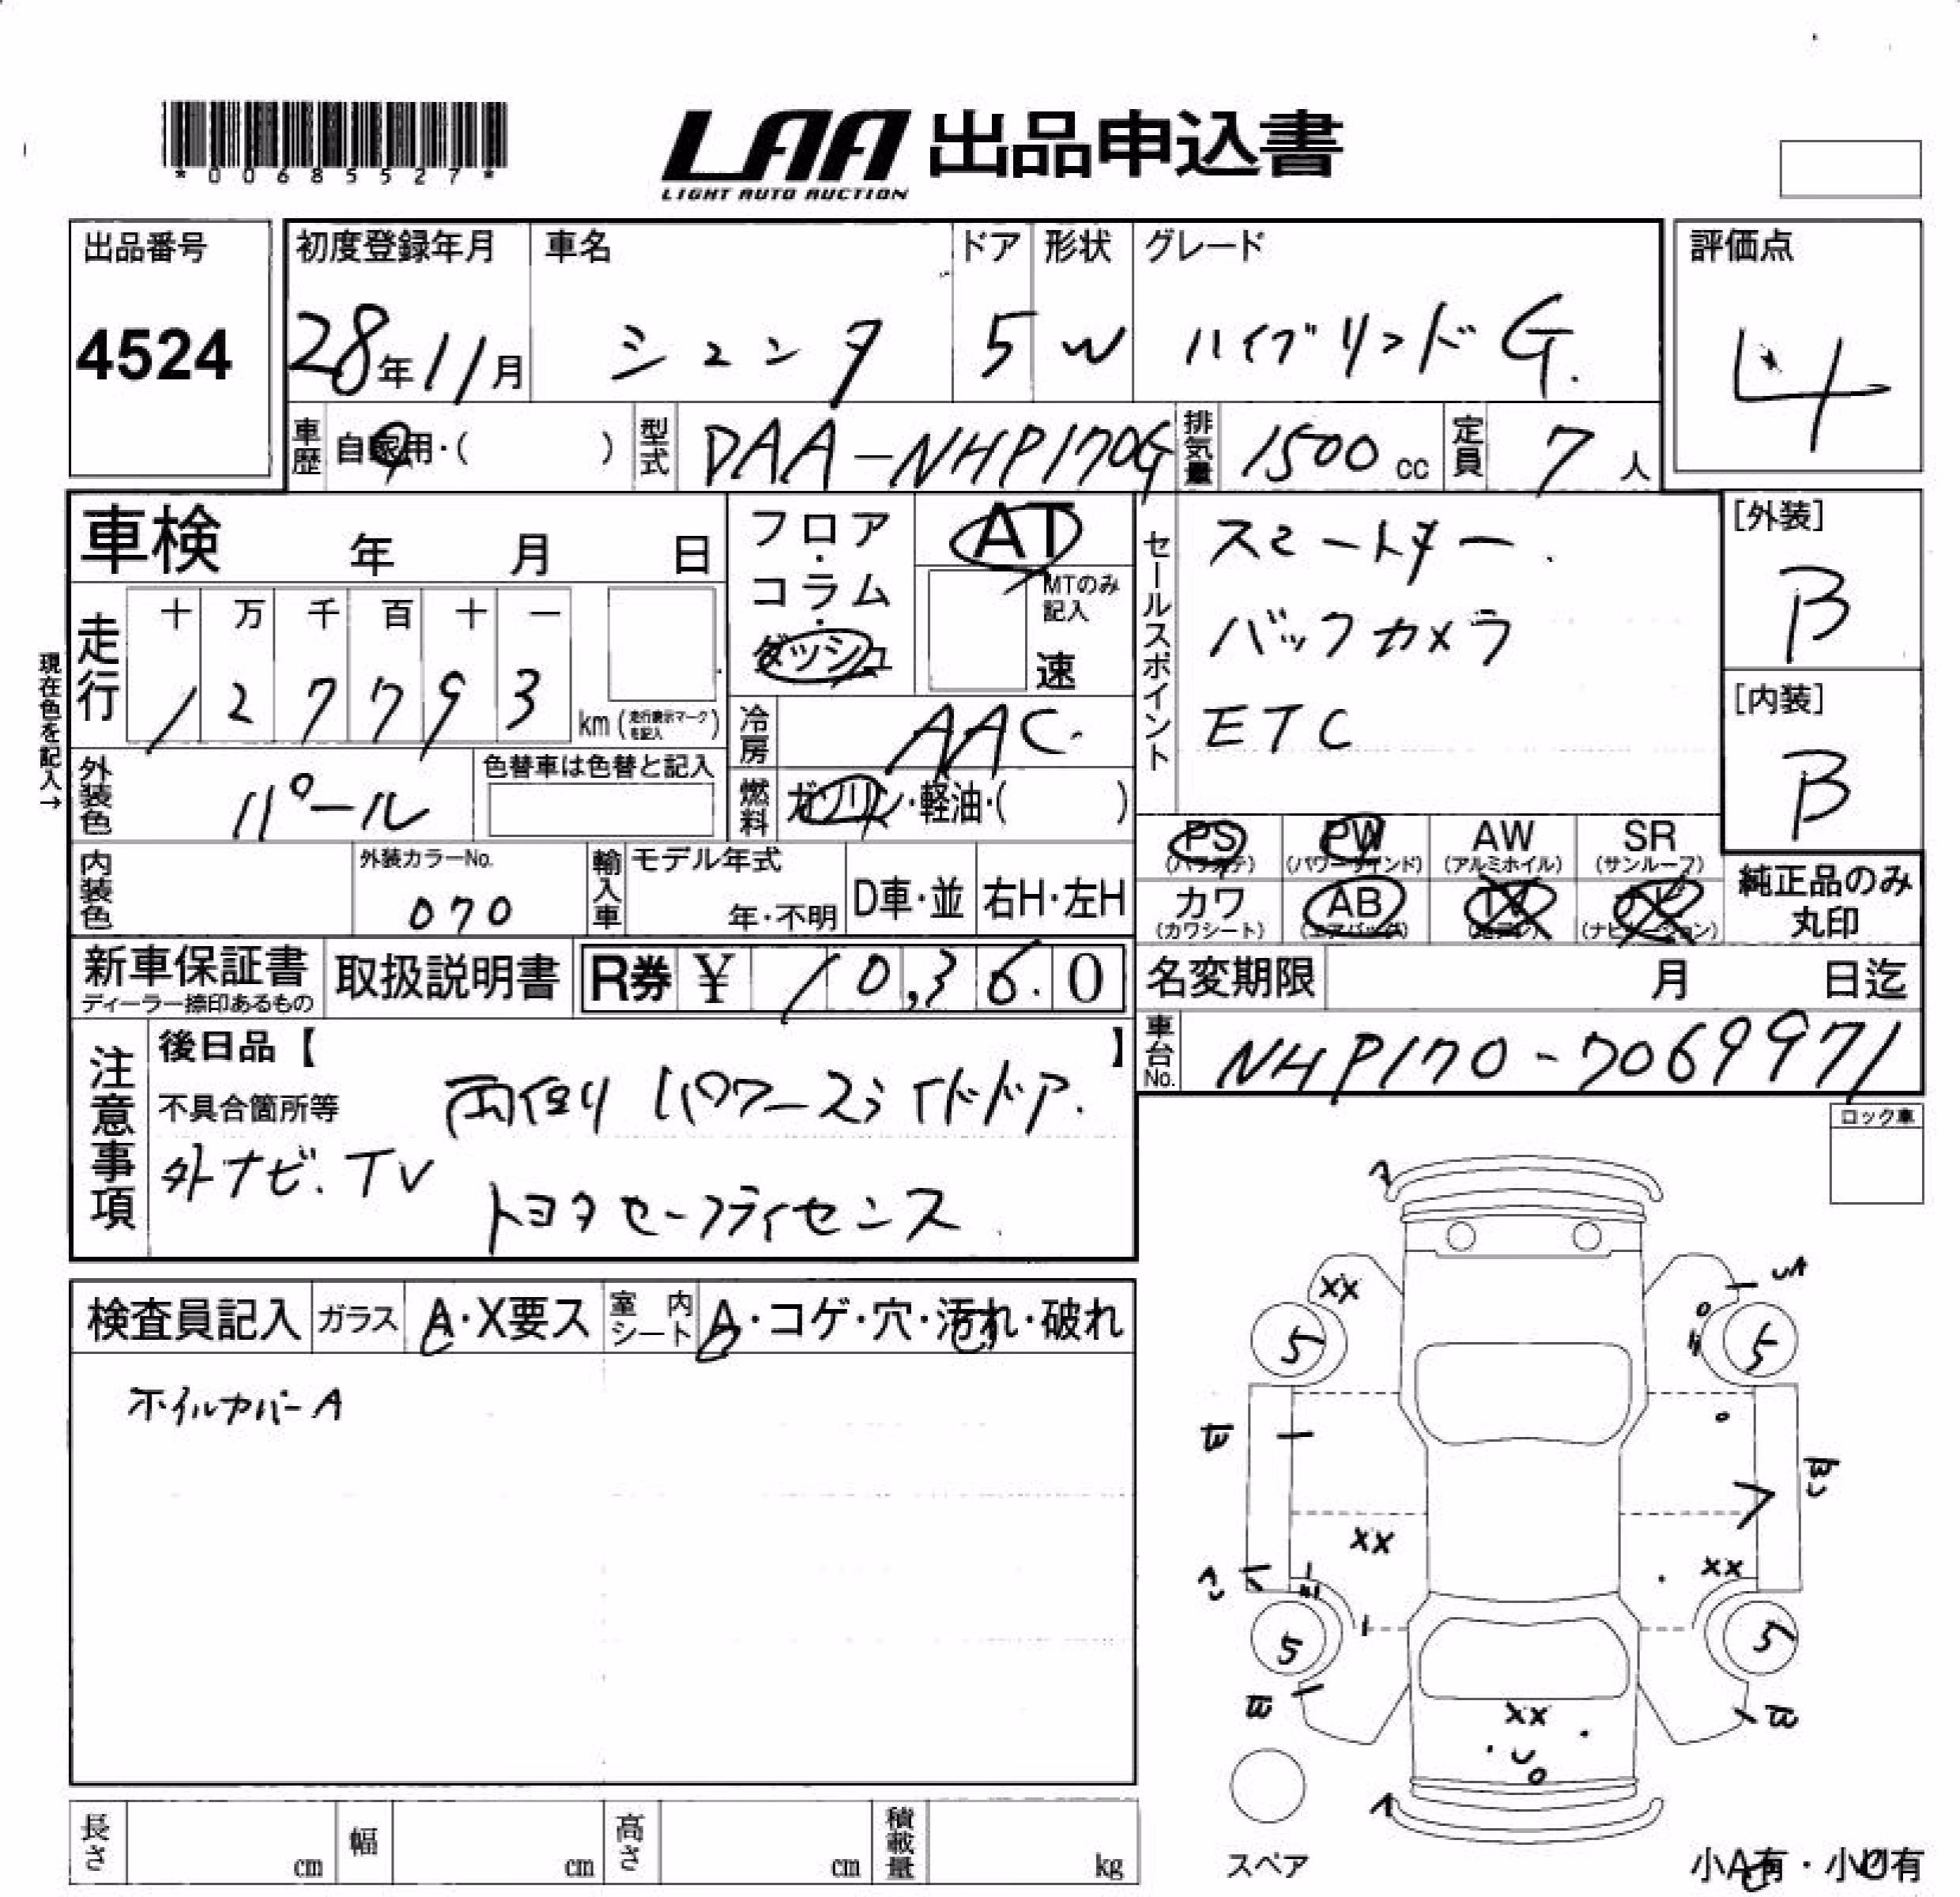 *00685527*
LAA 出品申込書
LIGHT AUTO AUCTION
出品番号
4524
初度登録年月 車名 ドア 形状 グレード
28年11月 シエンタ 5 W ハイブリッドG.
評価点
4
車歴 自家用・( ) 型式 DAA-NHP170G 排気量 1500cc 定員 7人
車検 年 月 日
フロア・コラム・ダッシュ
AT
MTのみ記入
速
走行 十 万 千 百 十 一
127793
km(走行表示マークを記入)
現在色を記入→
冷房 AAC.
外装色 パール 色替車は色替と記入
燃料 ガソリン・軽油・( )
内装色 外装カラーNo. 070
輸入車 モデル年式 年・不明 D車・並 右H・左H
セールスポイント
スマートキー.
バックカメラ
ETC
[外装]
B
[内装]
B
PS (パワステ) PW (パワーウインド) AW (アルミホイル) SR (サンルーフ)
カワ (カワシート) AB (エアバッグ) TV ナビ (ナビゲーション)
純正品のみ丸印
新車保証書 ディーラー捺印あるもの 取扱説明書 R券 ¥ 10,360
名変期限 月 日迄
車台No. NHP170-7069971
注意事項
後日品【 】
不具合箇所等 両側パワースライドドア.
外ナビ.TV
トヨタセーフティセンス.
ロック車
検査員記入 ガラス A・X要ス 室内シート A・コゲ・穴・汚れ・破れ
ホイルカバーA
XX
5 5
XX
XX
5 5
XX
スペア
長さ cm 幅 cm 高さ cm 積載量 kg
小A有・小凹有